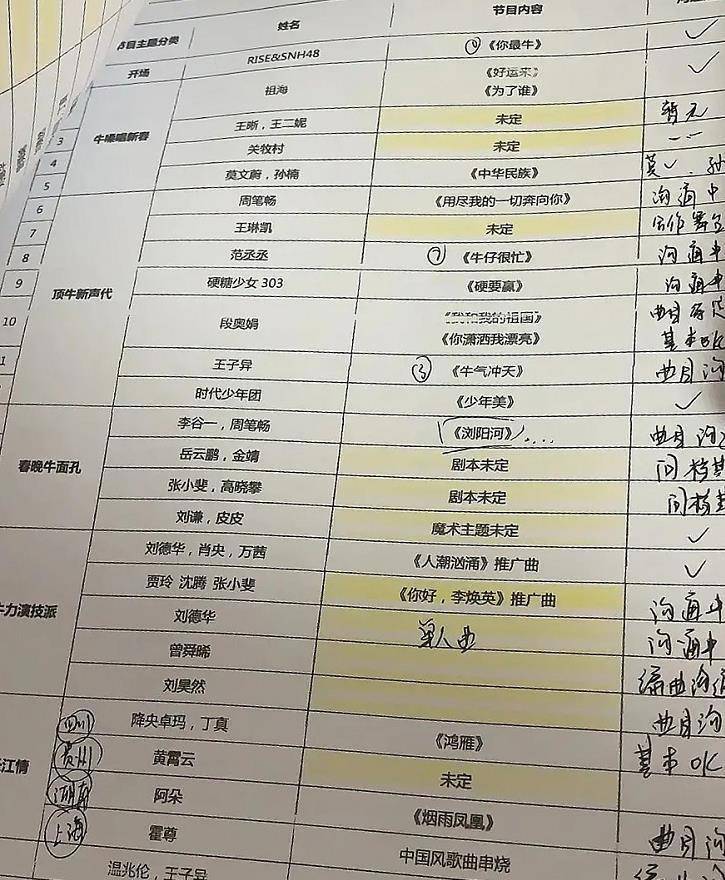 节目主题分类 姓名 节目内容
开场 RISE&SNH48 ①《你最牛》 ✓
牛嗓唱新春 祖海 《好运来》 ✓
《为了谁》
3 王晰，王二妮 未定 暂无
4 关牧村 未定
5 莫文蔚，孙楠 《中华民族》 莫✓.孙
6 顶牛新声代 周笔畅 《用尽我的一切奔向你》 沟通中
7 王琳凯 未定
8 范丞丞 《牛仔很忙》 沟通中
9 硬糖少女 303 《硬要赢》 沟通中
10 段奥娟 《我和我的祖国》
《你潇洒我漂亮》 基本OK
1 王子异 ③《牛气冲天》 曲目沟
时代少年团 《少年美》 ✓
春晚牛面孔 李谷一，周笔畅 《浏阳河》.... 曲目沟
岳云鹏，金靖 剧本未定
张小斐，高晓攀 剧本未定
刘谦，皮皮 魔术主题未定 ✓
牛力演技派 刘德华，肖央，万茜 《人潮汹涌》推广曲 ✓
贾玲 沈腾 张小斐 《你好，李焕英》推广曲 沟通中
刘德华 单人曲 沟通中
曾舜晞 编曲沟通
刘昊然 曲目沟
江情 四川 降央卓玛，丁真 《鸿雁》 基本OK
贵州 黄霄云 未定
湖南 阿朵 《烟雨凤凰》 曲目沟
上海 霍尊 中国风歌曲串烧
温兆伦，王子异